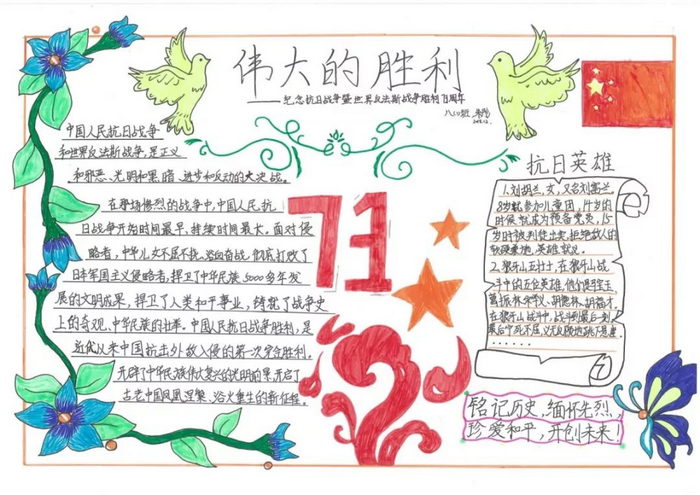 伟大的胜利
——纪念抗日战争暨世界反法斯战争胜利71周年
八(2)班
中国人民抗日战争
和世界反法斯战争，是正义
和邪恶、光明和黑暗、进步和反动的大决战。
在那场惨烈的战争中，中国人民抗
日战争开始时间最早，持续时间最大，面对侵
略者，中华儿女不屈不挠、浴血奋战，彻底打败了
日本军国主义侵略者，捍卫了中华民族5000多年发
展的文明成果，捍卫了人类和平事业，铸就了战争史
上的奇观、中华民族的壮举。中国人民抗日战争胜利，是
近代以来中国抗击外敌入侵的第一次完全胜利。
开辟了中华民族伟大复兴的光明前景，开启了
古老中国凤凰涅槃、浴火重生的新征程。
71
抗日英雄
1.刘胡兰，女，又名刘富兰，
8岁就参加儿童团，14岁的
时候就成为预备党员，15
岁时被判徒出卖，拒绝敌人的
软硬兼施，英雄就义。
2.狼牙山五壮士，在狼牙山战
斗中的五位英雄，他们是马宝
玉、葛振林、宋学义、胡德林、胡福才。
在狼牙山战斗中，战斗到最后一刻
最后宁死不屈，义无反顾地跳下悬崖
……
铭记历史，缅怀先烈，
珍爱和平，开创未来！